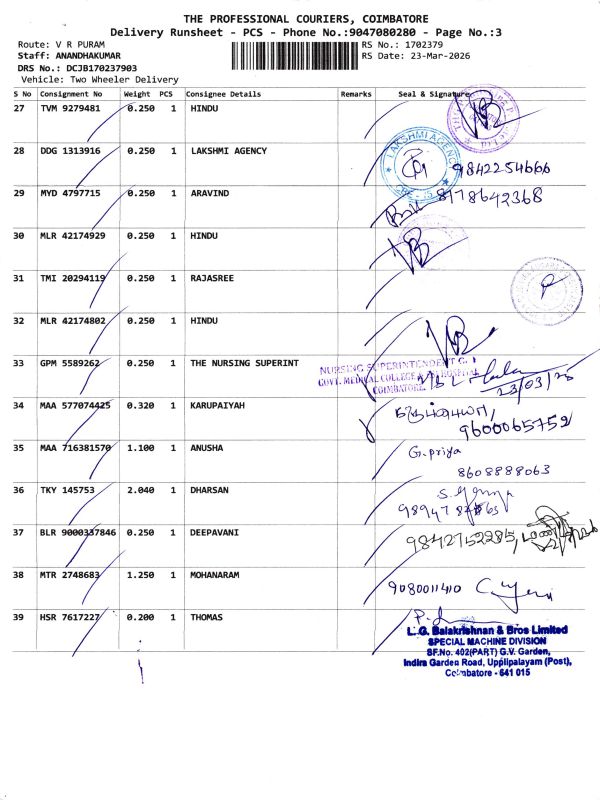 THE PROFESSIONAL COURIERS, COIMBATORE
Delivery Runsheet - PCS - Phone No.:9047080280 - Page No.:3
Route: V R PURAM RS No.: 1702379
Staff: ANANDHAKUMAR RS Date: 23-Mar-2026
DRS No.: DCJB170237903
Vehicle: Two Wheeler Delivery
S No Consignment No Weight PCS Consignee Details Remarks Seal & Signature
27 TVM 9279481 0.250 1 HINDU
28 DDG 1313916 0.250 1 LAKSHMI AGENCY LAKSHMI AGENCY 9842254666
29 MYD 4797715 0.250 1 ARAVIND 8778642368
30 MLR 42174929 0.250 1 HINDU
31 TMI 20294119 0.250 1 RAJASREE
32 MLR 42174802 0.250 1 HINDU
33 GPM 5589262 0.250 1 THE NURSING SUPERINT
NURSING SUPERINTENDENT
GOVT. MEDICAL COLLEGE HOSPITAL
COIMBATORE
23/03/26
34 MAA 577074425 0.320 1 KARUPAIYAH 9600065752
35 MAA 716381570 1.100 1 ANUSHA G.priya
8608888063
36 TKY 145753 2.040 1 DHARSAN
37 BLR 9000337846 0.250 1 DEEPAVANI 9842752285,
38 MTR 2748683 1.250 1 MOHANARAM 9080011410
39 HSR 7617227 0.200 1 THOMAS
L.G. Balakrishnan & Bros Limited
SPECIAL MACHINE DIVISION
SF.No. 402(PART) G.V. Garden,
Indira Garden Road, Upplipalayam (Post),
Coimbatore - 641 015